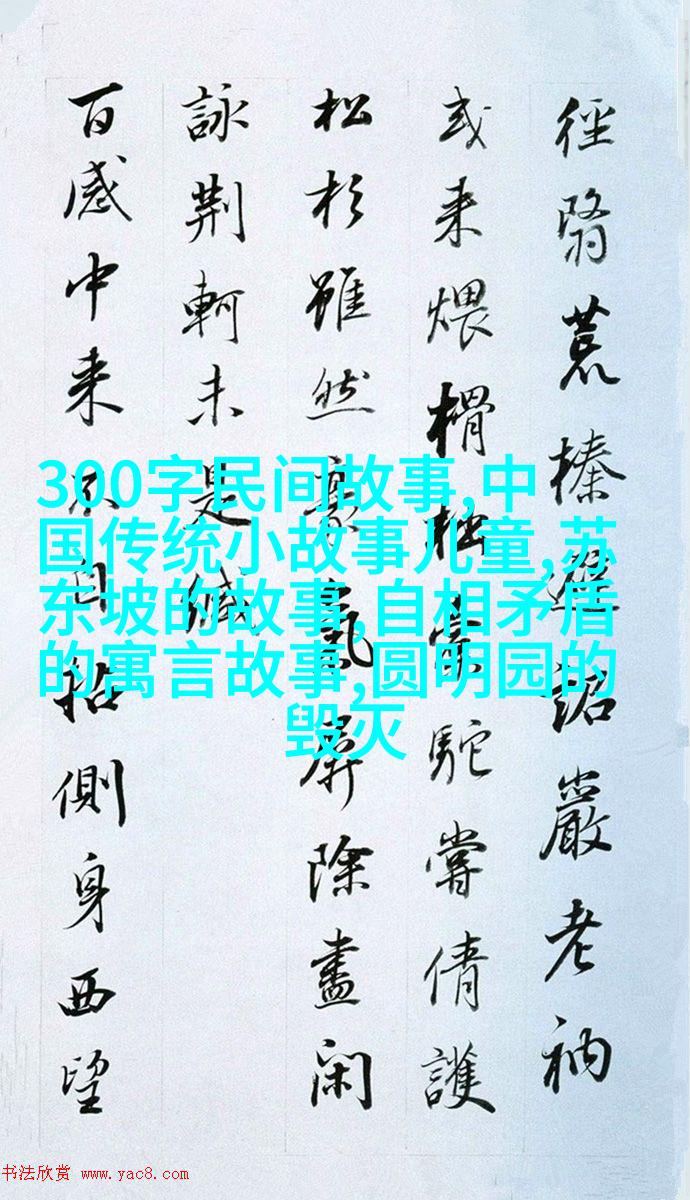 徑翳荒榛嚴老衲
或来煨榾柮駝嘗倩護
松杉雖然豪氣屏除盡閑
詠荆軻未是
百感中来不自側身西望
300字民间故事,中
国传统小故事儿童,苏
东坡的故事,自相矛盾
的寓言故事,圆明园的
毁灭
书法欣赏 www.yac8.com